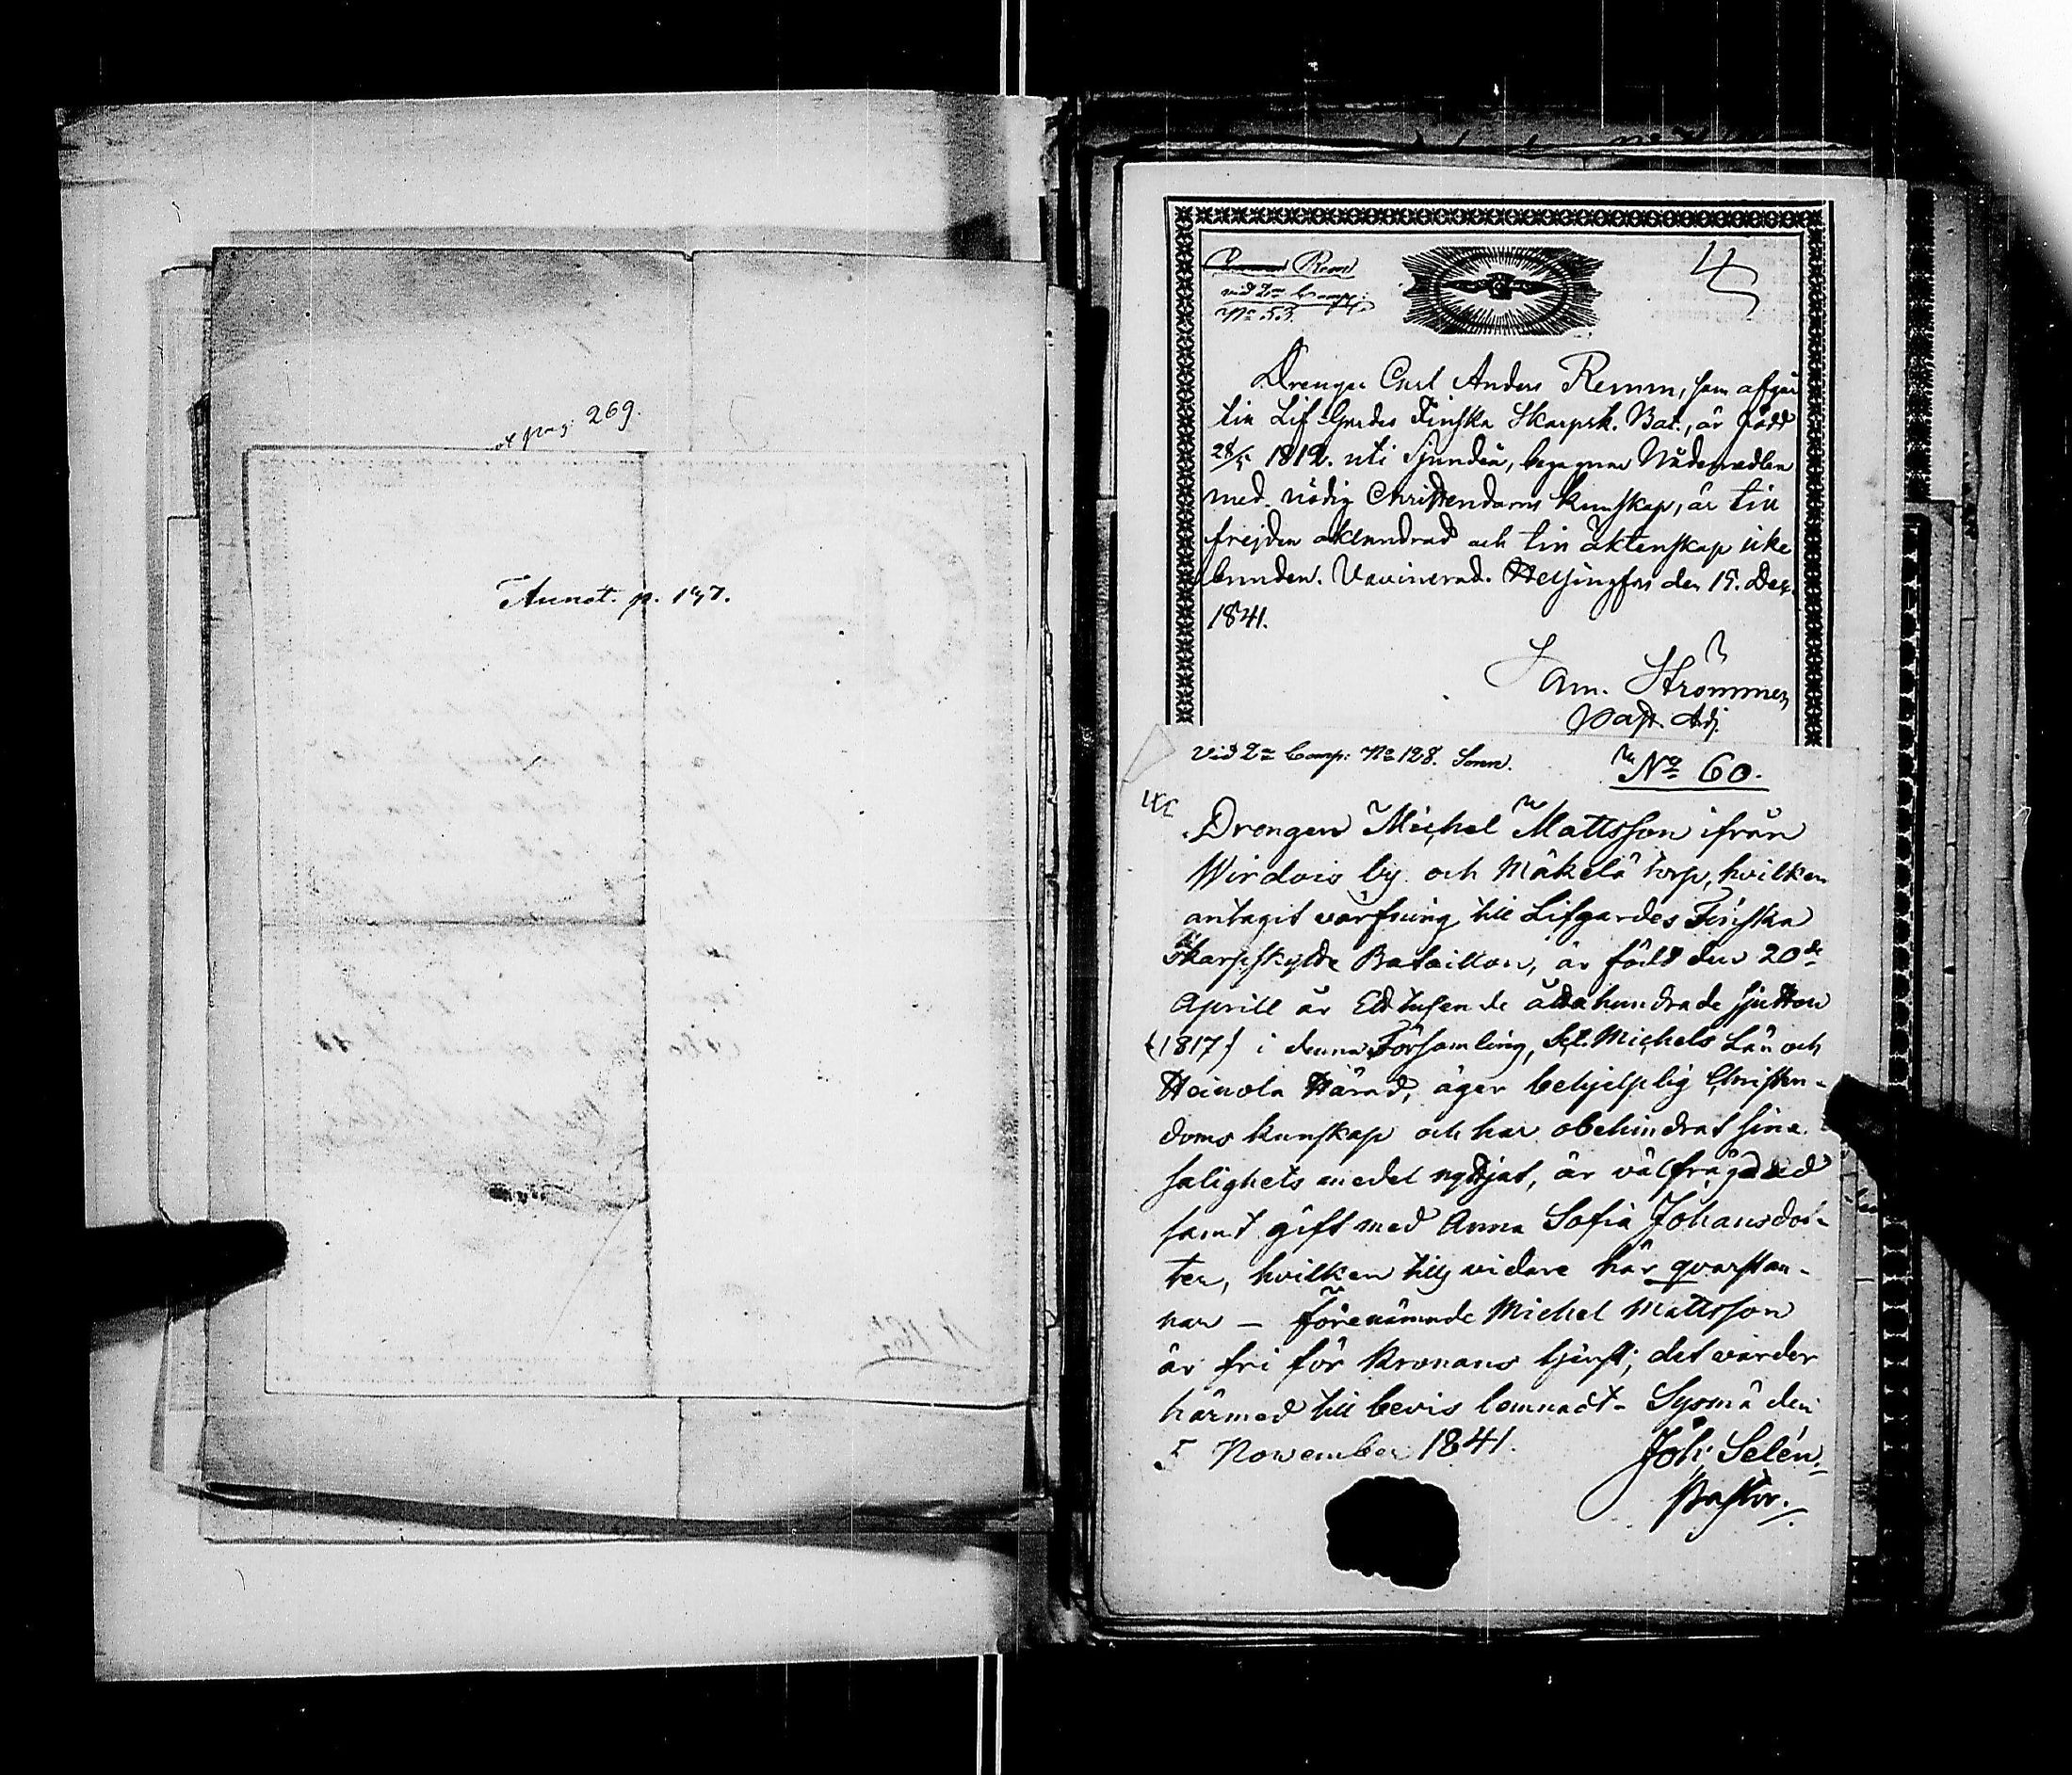 pag. 269.
Annot. p. 147.
Remm
vid 2ra Comp:
No 53.
Drengen Carl Anders Remm, som afgår
till Lif Gardes Finska Skarpsk. Bat., är född
28/5 1812. uti Sjundeå, begagnar Nådemedlen
med nödig Christendoms kunskap, är till
frejden oklandrad och till äktenskap icke
bunden. Vaccinerad. Helsingfors den 15. Dec.
1841.
Sam. Strömmer
Past. Adj.
Vid 2ra Comp: No 128. Sonn.
No 60.
Drengen Michel Mattsson ifrån
Wirdois by och Mäkelä torp, hvilken
antagit värfning till Lifgardes Finska
Skarpskytte Bataillon, är född den 20de
Aprill år Ett tusende åttahundrade sjutton
(1817) i denna Församling, St. Michels Län och
Heinola Härad, äger behjelplig Christen-
doms kunskap och har obehindrat sina
salighets medel nyttjat, är välfrägdad
samt gift med Anna Sofia Johansdot-
ter, hvilken tills vidare här qvarstan-
nar – förenämnde Michel Mattsson
är fri för Kronans tjenst; det varder
härmed till bevis lemnadt – Sysmä den
5 November 1841.
Joh: Selén,
Pastor.